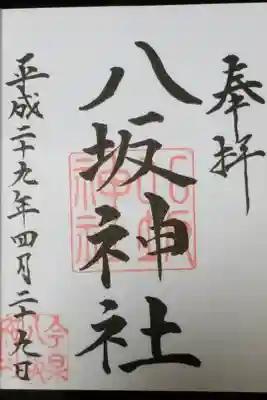 奉拝
八坂神社
平成二十九年四月二十九日